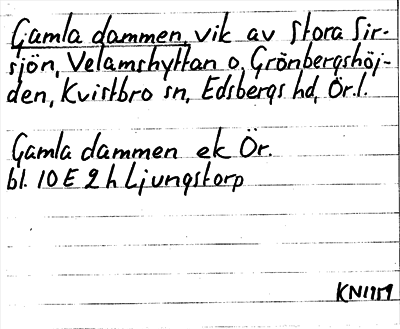 Gamla dammen, vik av Stora Sir-
sjön, Velamshyttan o. Grönbergshöj-
den, Kvistbro sn, Edsbergs hd, Ör.l.
Gamla dammen ek Ör.
bl. 10 E 2 h Ljungstorp